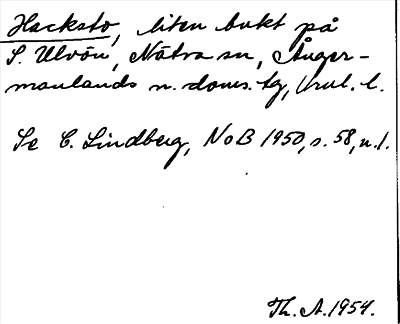 Hacksto, liten bukt på
S. Ulvön, Nätra sn, Ånger-
manlands n. doms. tg, Vnl. l.
Se C. Lindberg, NoB 1950, s. 58, n. 1.
Th. A. 1954.